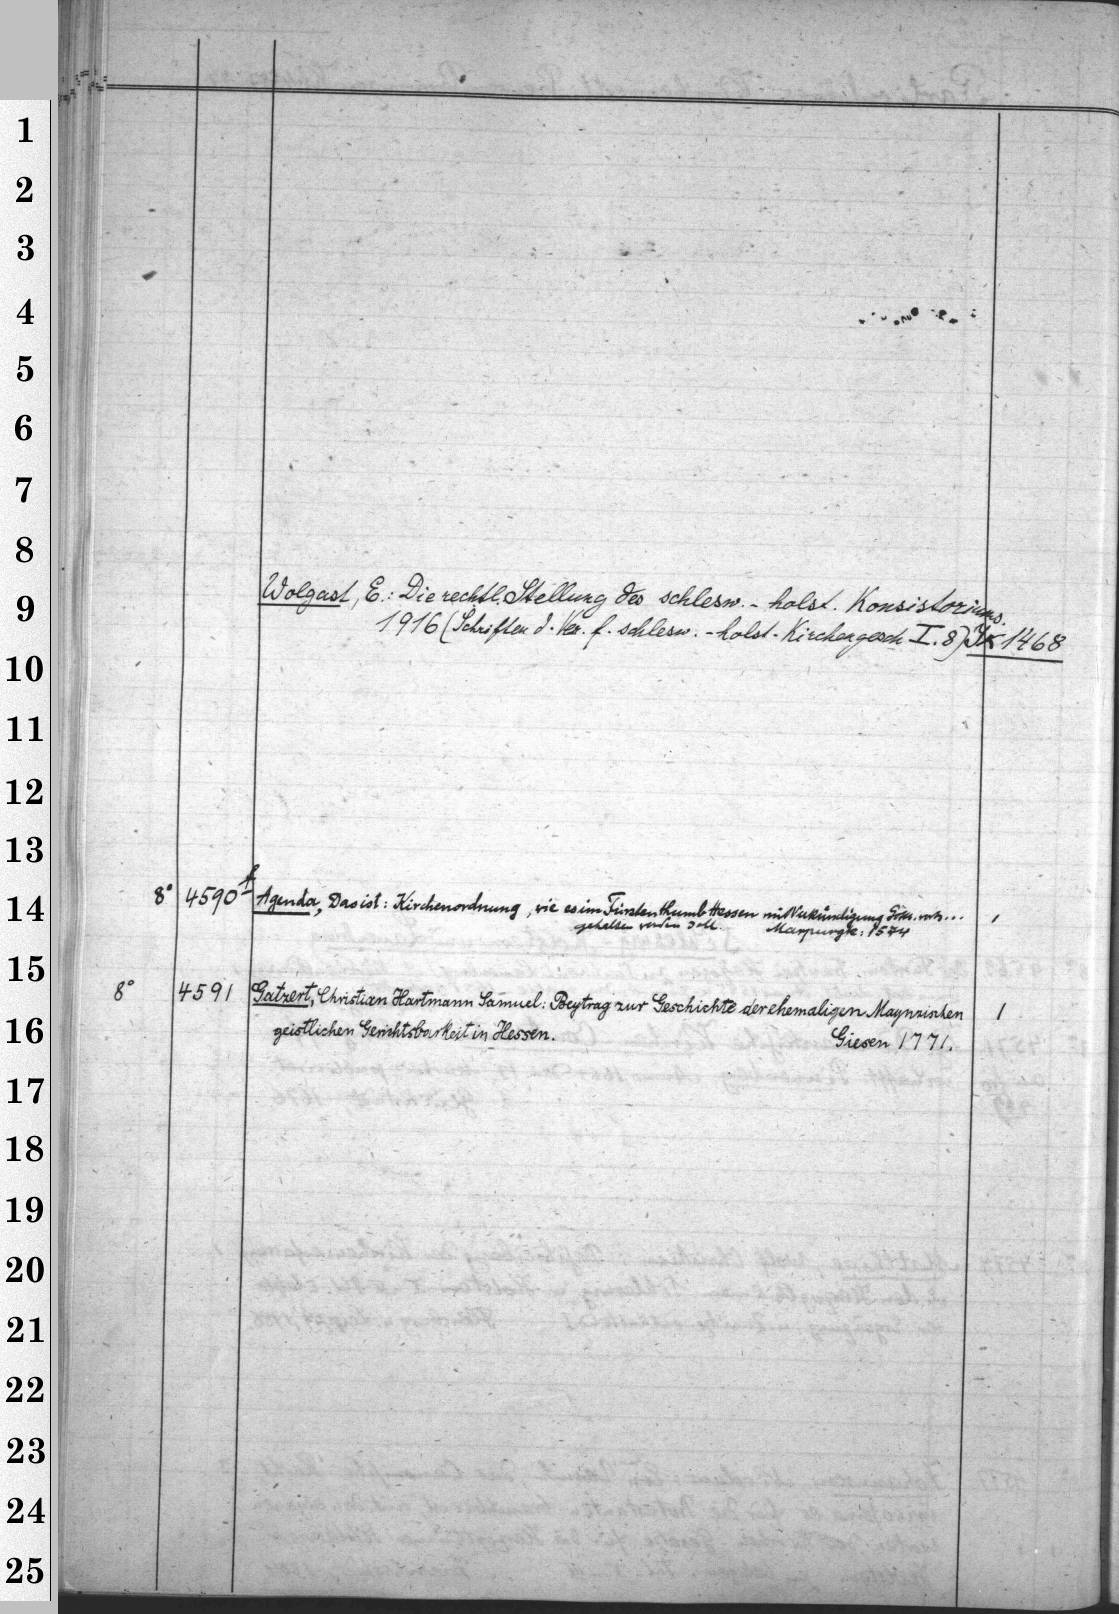 1
2
3
4
5
6
7
8
9
Wolgast, E.: Die rechtl. Stellung des schlesw.-holst. Konsistoriums.
1916 (Schriften d. Ver. f. schlesw.-holst. Kirchengesch I. 8) 1468
10
11
12
13
14
8° 4590 f Agenda, Das ist: Kirchenordnung, wie es im Fürstenthumb Hessen mit Verkündigung ... 1
gehalten werden soll. Marpurgk: 1574
15
8° 4591 Gatzert, Christian Hartmann Samuel: Beytrag zur Geschichte der ehemaligen Maynzischen 1
16
geistlichen Gerichtsbarkeit in Hessen. Giesen 1771.
17
18
19
20
21
22
23
24
25